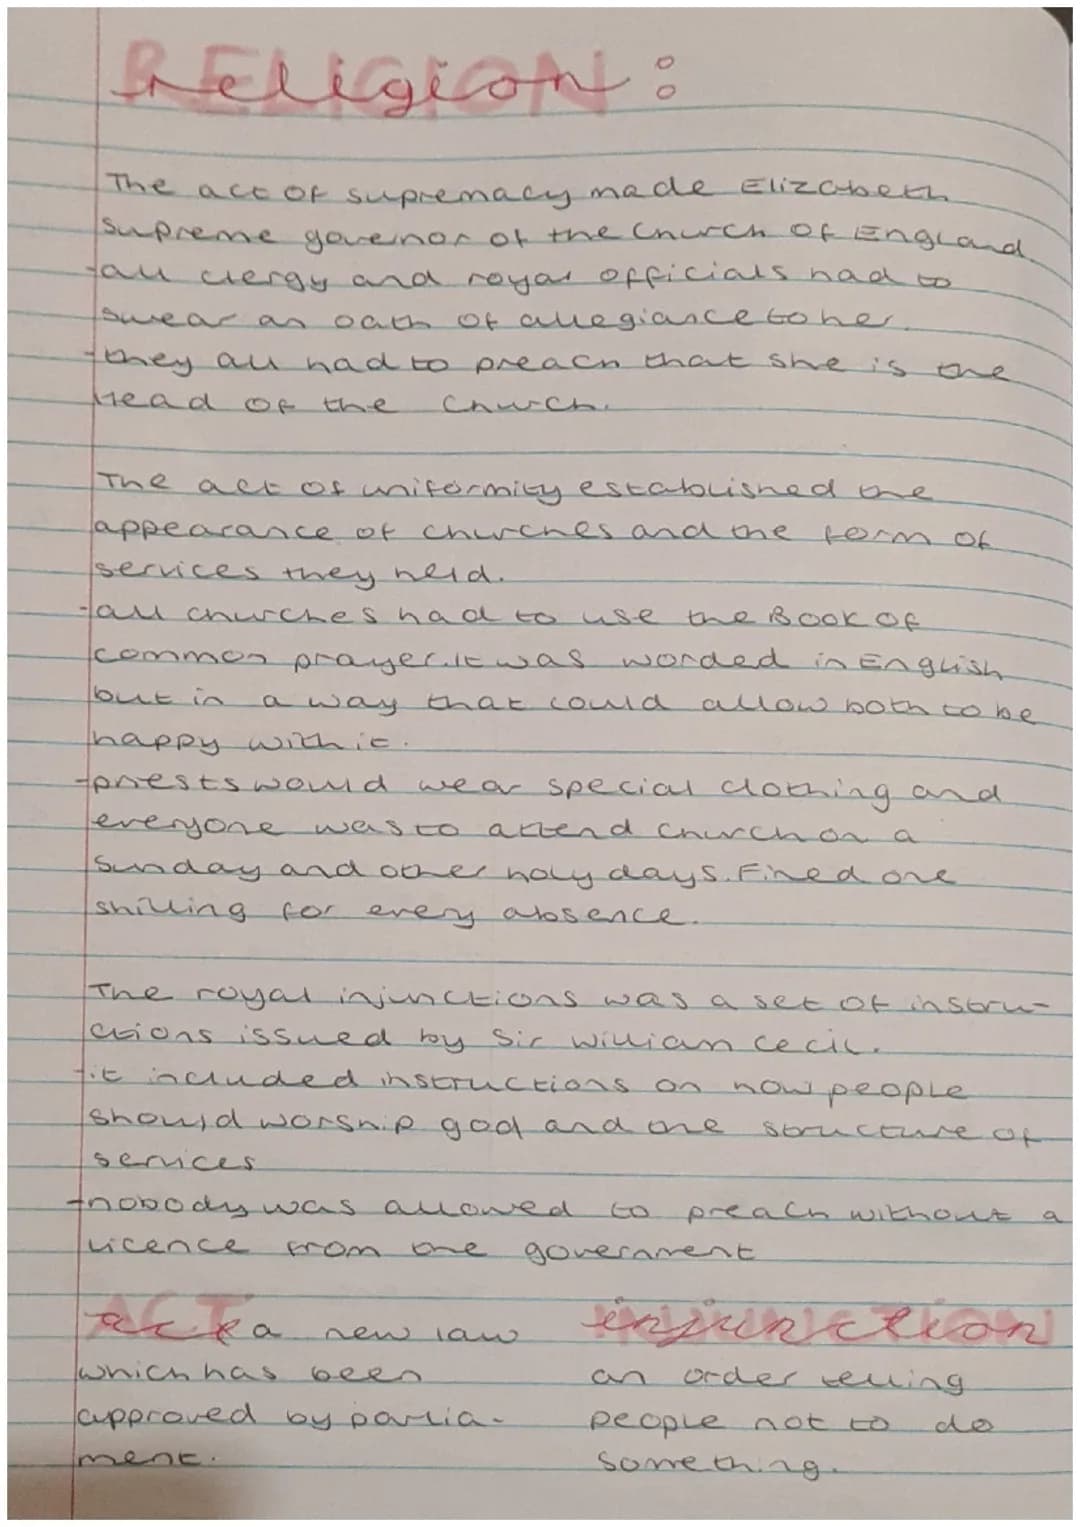 Religion:
The act of supremacy made Elizabeth
supreme govenor of the Church of England.
-all clergy and royal officials had to
swear an oath of allegiance to her.
-they all had to preach that she is the
Head of the Church.
The act of uniformity established the
appearance of churches and the form of
services they held.
-all churches had to use the Book of
common prayer. It was worded in English
but in a way that could allow both to be
happy with it.
-priests would wear special clothing and
everyone was to attend church on a
Sunday and other holy days. Fined one
shilling for every absence.
The royal injunctions was a set of instru-
ctions issued by Sir Willian Cecil.
-it included instructions on how people
should worship god and the structure of
services
-nobody was allowed to preach without a
licence from the government
ACT act a new law
which has been
approved by parlia-
ment.
INJUNCTION injunction
an order telling
people not to do
something.